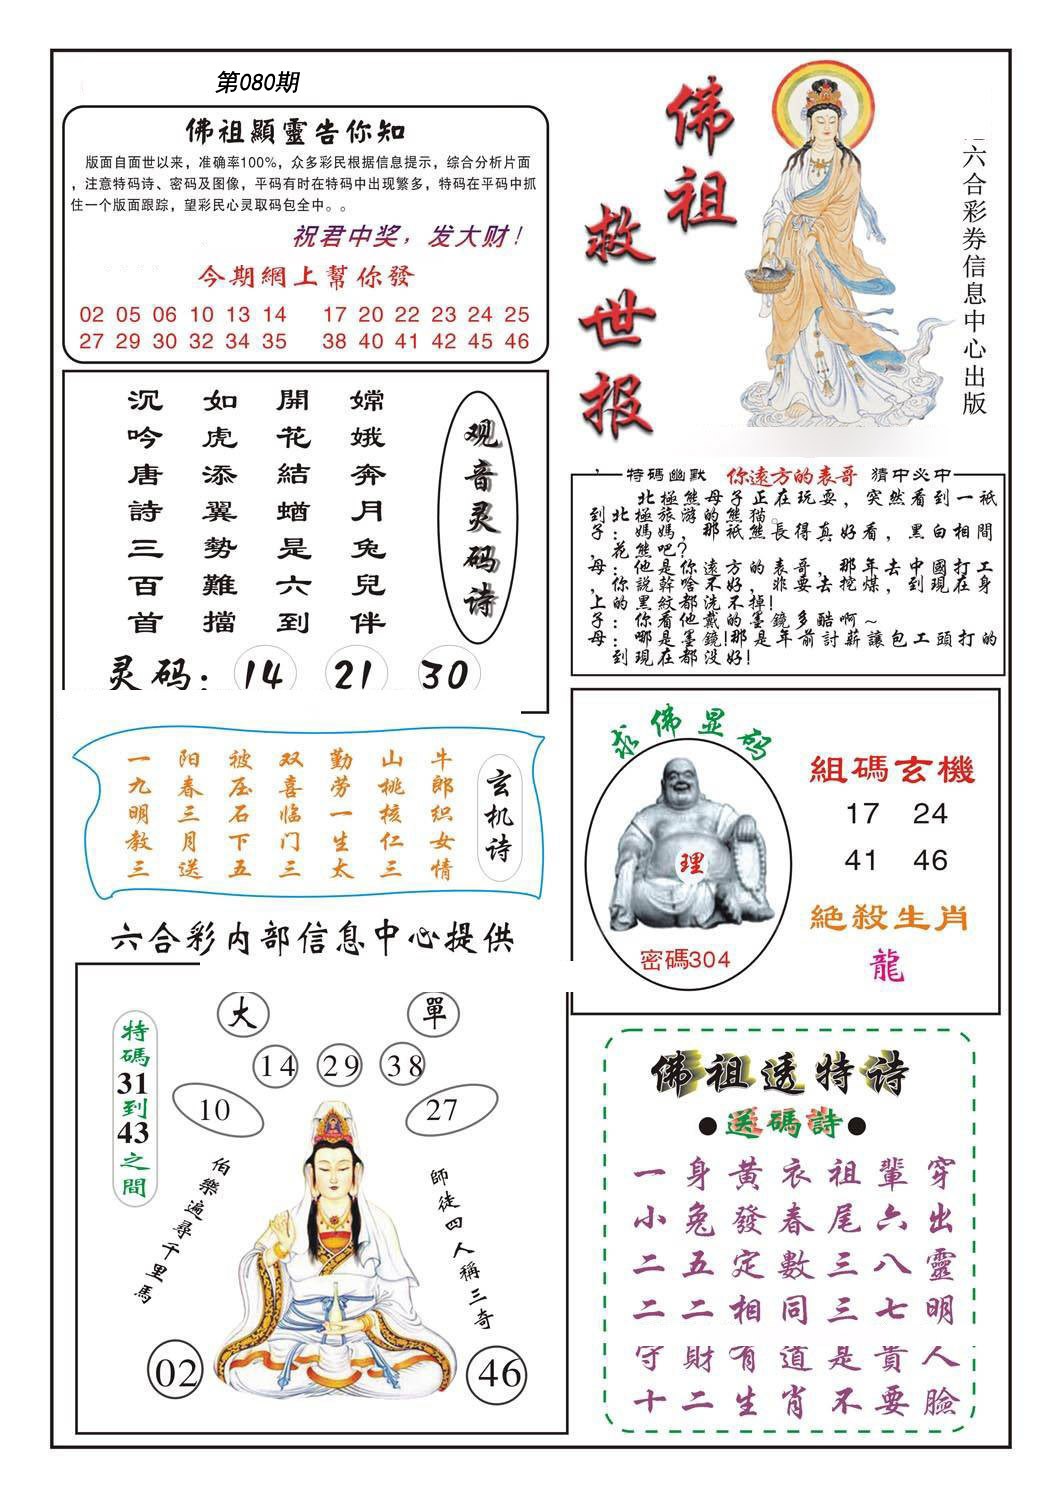 第080期
佛祖顯靈告你知
版面自面世以来，准确率100%，众多彩民根据信息提示，综合分析片面
，注意特码诗、密码及图像，平码有时在特码中出现繁多，特码在平码中抓
住一个版面跟踪，望彩民心灵取码包全中。。
祝君中奖，发大财！
今期網上幫你發
02 05 06 10 13 14 17 20 22 23 24 25
27 29 30 32 34 35 38 40 41 42 45 46
佛祖
救世报
六合彩券信息中心出版
观音灵码诗
嫦娥奔月兔兒伴
開花結蝤是六到
如虎添翼勢難擋
沉吟唐詩三百首
灵码：14 21 30
特碼幽默 你遠方的表哥 猜中必中
北極熊母子正在玩耍，突然看到一祇
到北極旅游的熊猫。
子：媽媽，那祇熊長得真好看，黑白相間
，花熊吧？
母：他是你遠方的表哥，那年去中國打工
，你說幹啥不好，非要去挖煤，到現在身
上的黑紋都洗不掉！
子：你看他戴的墨鏡多酷啊～
母：哪是墨鏡！那是年前討薪讓包工頭打的
到現在都没好！
玄机诗
牛郎织女情
山桃核仁三
勤劳一生太
双喜临门三
被压石下五
阳春三月送
一九明教三
求佛显码
理
密碼304
組碼玄機
17 24
41 46
絕殺生肖
龍
六合彩内部信息中心提供
大 單
14 29 38
10 27
特碼31到43之間
伯樂遍尋千里馬
師徒四人稱三奇
02 46
佛祖透特诗
●送碼詩●
一身黄衣祖輩穿
小兔發春尾六出
二五定數三八靈
二二相同三七明
守財有道是貴人
十二生肖不要臉